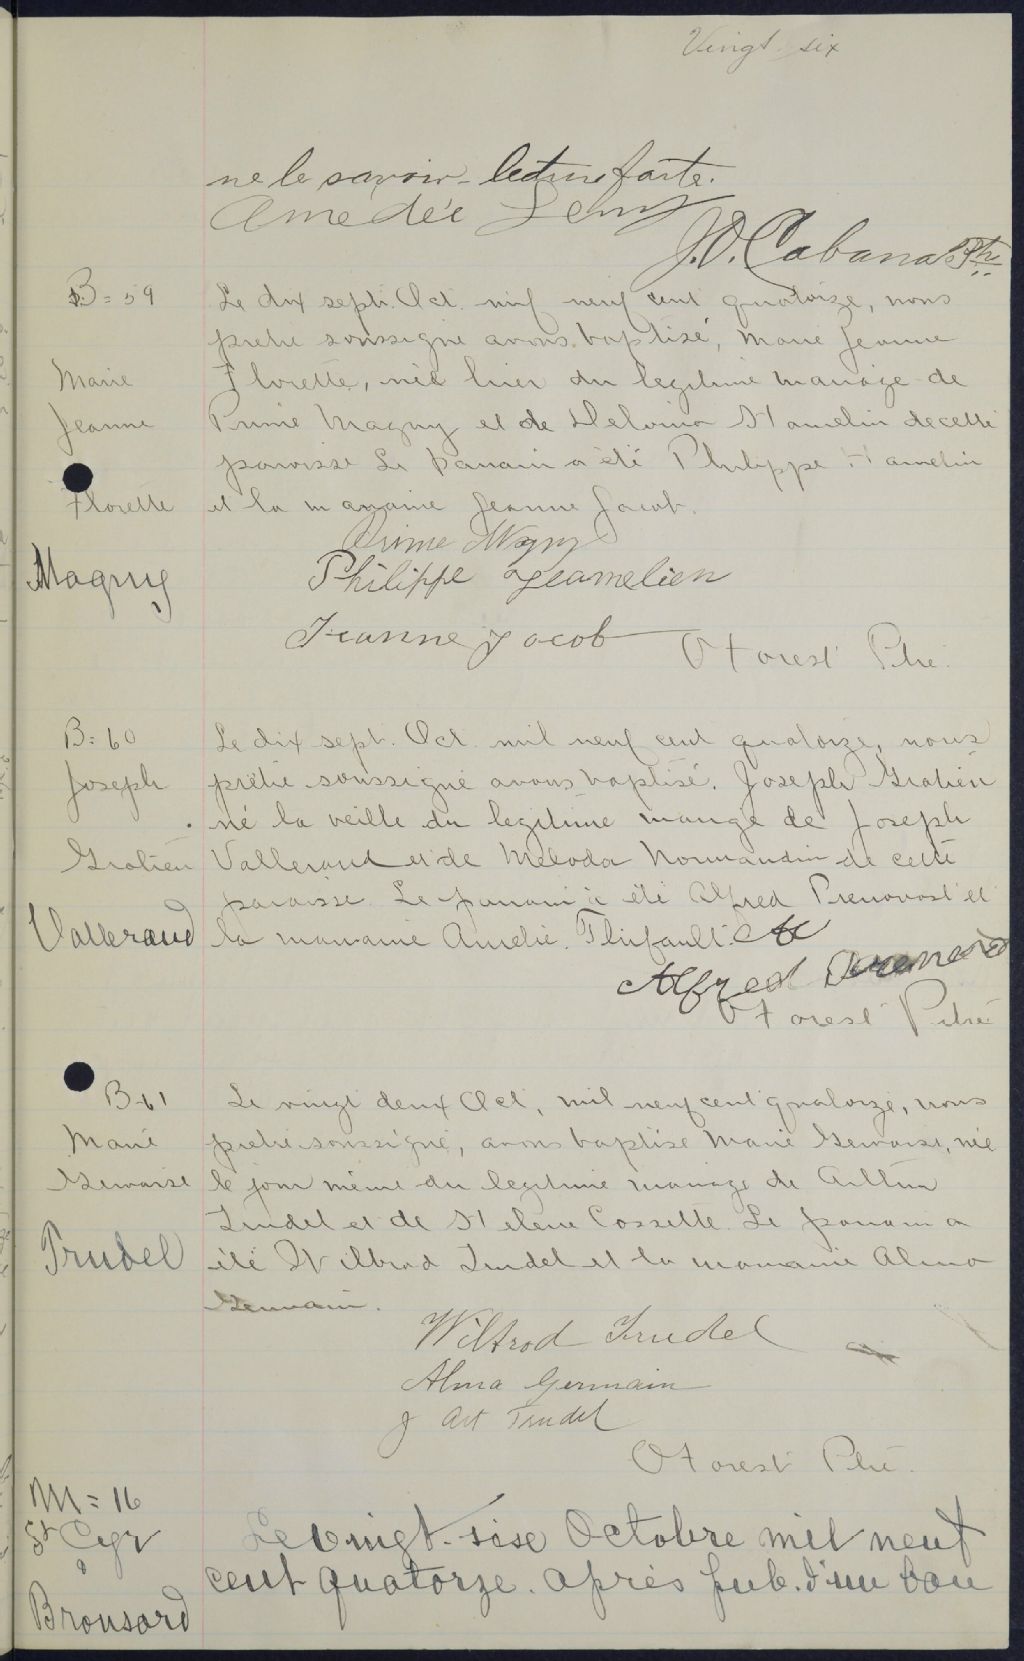 Vingt six
ne le savoir - lecture faite.
Amedée
J.O. Cabana Ptre
B = 59
Le dix sept. Oct. mil neuf cent quatorze, nous
pretre soussigné avons baptisé, Marie Jeanne
Marie
Florette, née hier du legitime mariage de
Jeanne
Prime Magny et de Delvina Hamelin de cette
paroisse Le parrain a été Philippe Hamelin
Florette
et la marraine Jeanne Jacob.
Prime Magny
Magny
Philippe Heamelien
Jeanne Jacob
O Forest Ptre.
B = 60
Le dix sept. Oct. mil neuf cent quatorze, nous
Joseph
prêtre soussigné avons baptisé. Joseph Gratien
né la veille du legitime mariage de Joseph
Gratien
Vallerand et de Meloda Normandin de cette
paroisse. Le parrain a été Alfred Prenovost et
Vallerand
la marraine Amelie. Thifault.
Alfred
O Forest Ptre
B 61
Le vingt deux Oct, mil neuf cent quatorze, nous
Marie
pretre soussigné, avons baptisé Marie Gervaise, née
Gervaise
le jour même du legitime mariage de Arthur
Trudel et de Helene Cossette. Le parrain a
Trudel
été Wilbrod Trudel et la marraine Alma
Germain.
Wilbrod Trudel
Alma Germain
J Art Trudel
O Forest Ptre.
M = 16
St Cyr
&
Le vingt-sise Octobre mil neuf
cent quatorze. après pub. d'un ban
Brousard